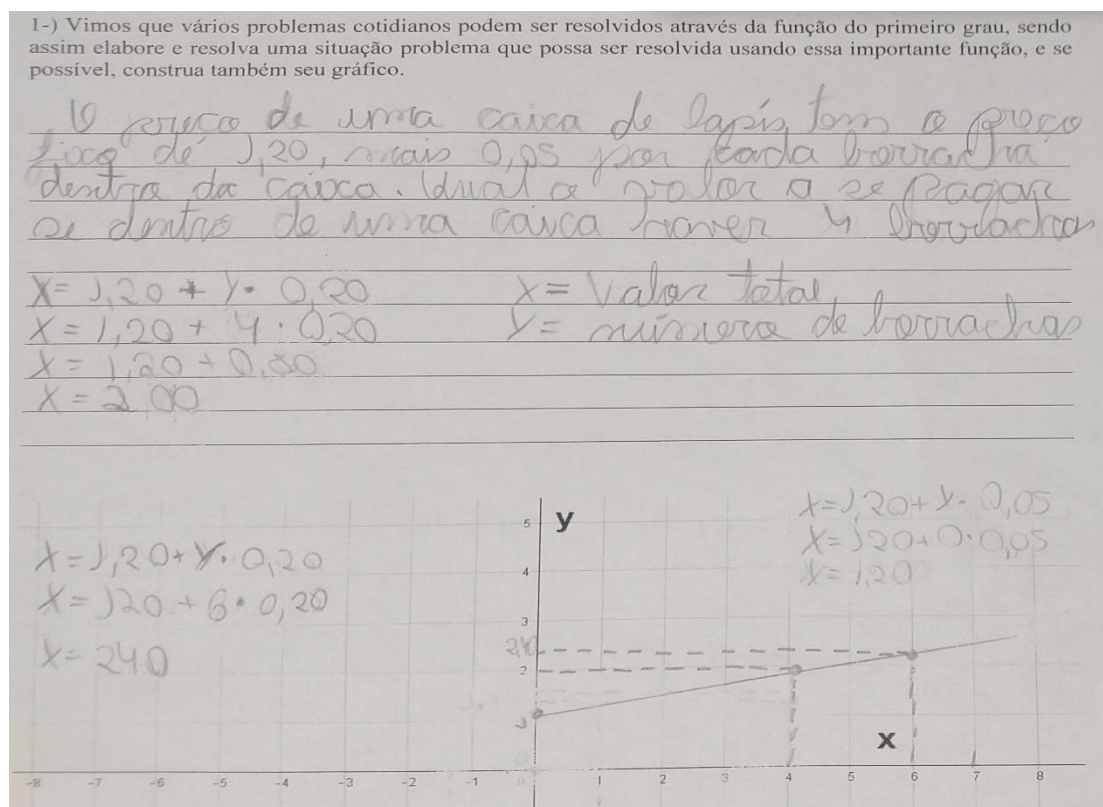 1-) Vimos que vários problemas cotidianos podem ser resolvidos através da função do primeiro grau, sendo
assim elabore e resolva uma situação problema que possa ser resolvida usando essa importante função, e se
possível, construa também seu gráfico.
O preço de uma caixa de lapis, tem o preço
fixo de 1,20, mais 0,05 por cada borracha
dentro da caixa. Qual o valor a se pagar
se dentro de uma caixa haver 4 borrachas
X= 1,20 + y. 0,20
X = 1,20 + 4 . 0,20
X = 1,20 + 0,80
X = 2,00
x = Valor total,
y = número de borrachas
X=1,20+y. 0,20
X=120+6.0,20
X= 240
X=1,20+y. 0,05
X=120+0.0,05
X=1,20
y
5
4
3
2,40
2
1
x
-8 -7 -6 -5 -4 -3 -2 -1 0 1 2 3 4 5 6 7 8